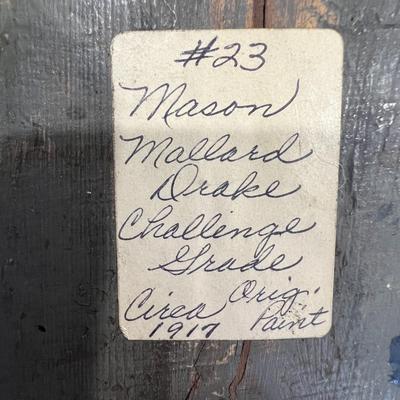 #23
Mason
Mallard
Drake
Challenge
Grade
Circa Orig.
1917 Paint